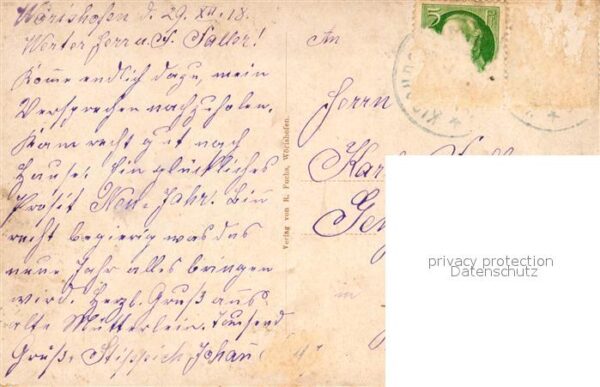 Wörishofen d. 29. XII. 18.
Werter Herr u. F. Saller!
Komme endlich dazu, mein
Versprechen nachzuholen.
Kam recht gut nach
Hause. Ein glückliches
Prosit Neu-Jahr. Bin
recht begierig was das
neue Jahr alles bringen
wird. Herzl. Gruß ans
alte Mütterlein. Tausend
Grüße. Johann
Verlag von R. Fuchs, Wörishofen.
An
Herrn
in
privacy protection
Datenschutz